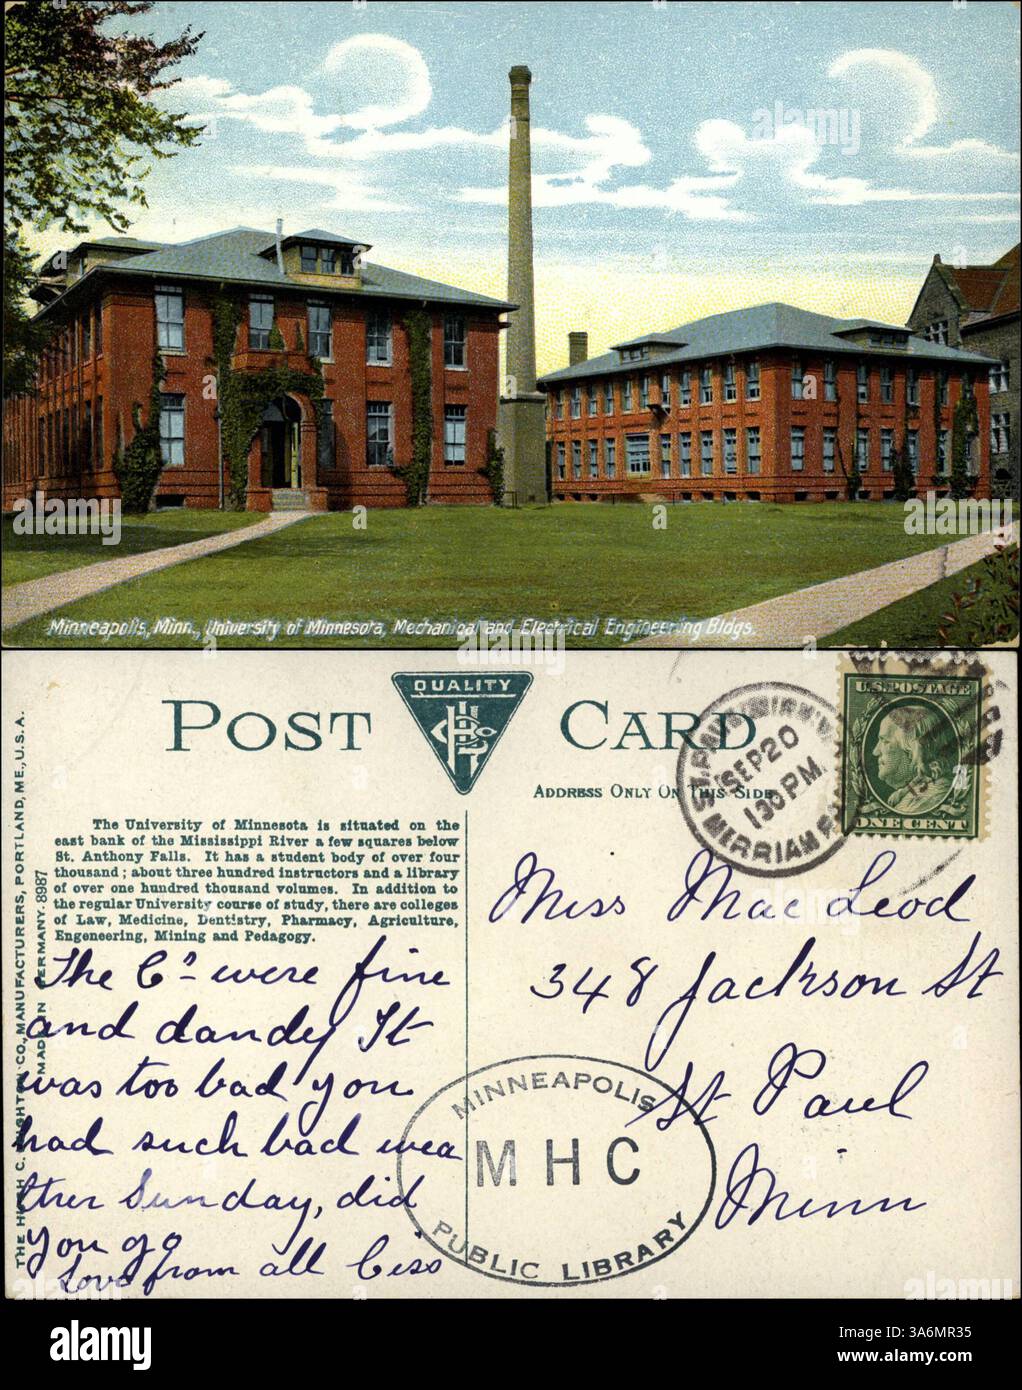 Minneapolis, Minn., University of Minnesota, Mechanical and Electrical Engineering Bldgs.
POST CARD
QUALITY
ADDRESS ONLY ON THIS SIDE.
ST. PAUL, MINN.
SEP 20
130 PM
MERRIAM PK
U.S. POSTAGE
ONE CENT
THE HUGH C. LEIGHTON CO., MANUFACTURERS, PORTLAND, ME., U.S.A.
MADE IN GERMANY. 8987
The University of Minnesota is situated on the
east bank of the Mississippi River a few squares below
St. Anthony Falls. It has a student body of over four
thousand; about three hundred instructors and a library
of over one hundred thousand volumes. In addition to
the regular University course of study, there are colleges
of Law, Medicine, Dentistry, Pharmacy, Agriculture,
Engeneering, Mining and Pedagogy.
The C's were fine
and dandy It
was too bad you
had such bad wea
ther Sunday, did
you go
Love from all Ciss
Miss Mac Leod
348 Jackson St
St Paul
Minn
MINNEAPOLIS
MHC
PUBLIC LIBRARY
alamy
alamy
Image ID: 3A6MR35
www.alamy.com